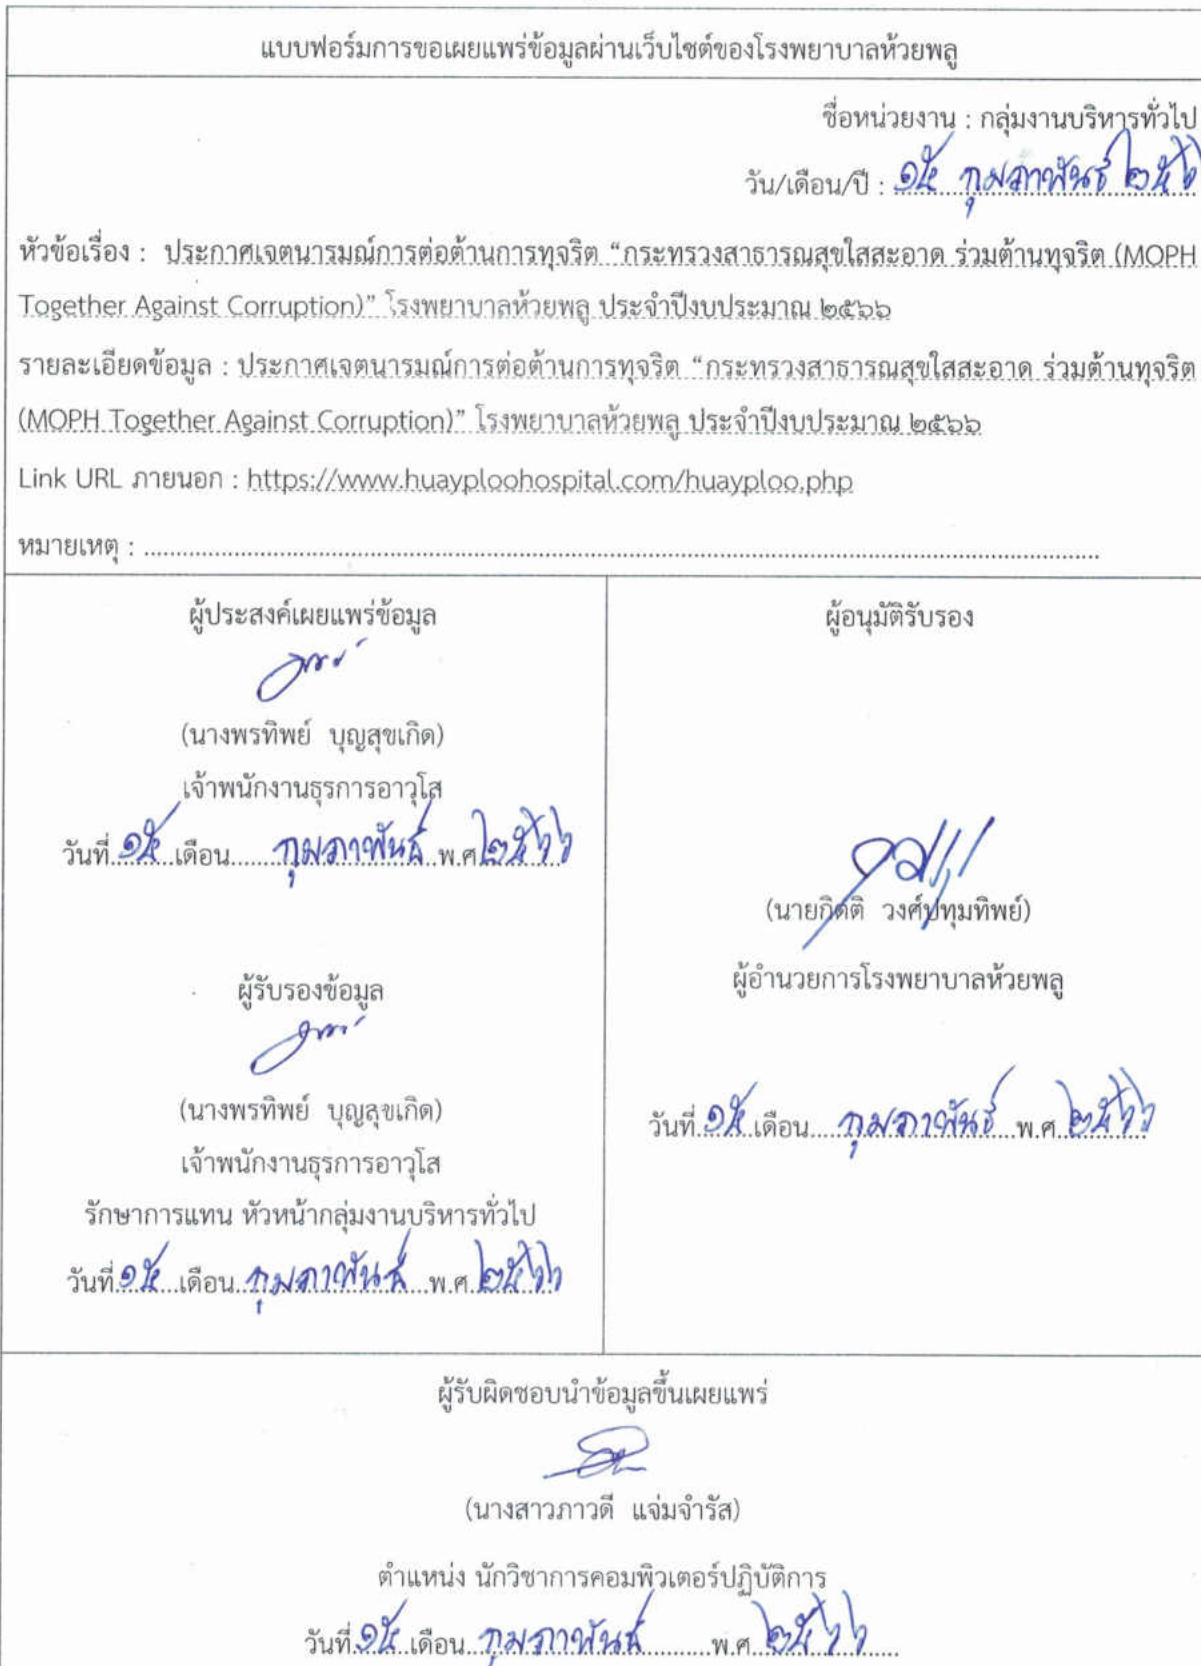 แบบฟอร์มการขอเผยแพร่ข้อมูลผ่านเว็บไซต์ของโรงพยาบาลห้วยพลู
ชื่อหน่วยงาน : กลุ่มงานบริหารทั่วไป
วัน/เดือน/ปี : ๑๕ กุมภาพันธ์ ๒๕๖
หัวข้อเรื่อง : ประกาศเจตนารมณ์การต่อต้านการทุจริต “กระทรวงสาธารณสุขใสสะอาด ร่วมต้านทุจริต (MOPH
Together Against Corruption)” โรงพยาบาลห้วยพลู ประจำปีงบประมาณ ๒๕๖๖
รายละเอียดข้อมูล : ประกาศเจตนารมณ์การต่อต้านการทุจริต “กระทรวงสาธารณสุขใสสะอาด ร่วมต้านทุจริต
(MOPH Together Against Corruption)” โรงพยาบาลห้วยพลู ประจำปีงบประมาณ ๒๕๖๖
Link URL ภายนอก : https://www.huayploohospital.com/huayploo.php
หมายเหตุ : ........................................................................
ผู้ประสงค์เผยแพร่ข้อมูล
(นางพรทิพย์ บุญสุขเกิด)
เจ้าพนักงานธุรการอาวุโส
วันที่ ๑๕ เดือน กุมภาพันธ์ พ.ศ. ๒๕๖๖
ผู้รับรองข้อมูล
(นางพรทิพย์ บุญสุขเกิด)
เจ้าพนักงานธุรการอาวุโส
รักษาการแทน หัวหน้ากลุ่มงานบริหารทั่วไป
วันที่ ๑๕ เดือน กุมภาพันธ์ พ.ศ. ๒๕๖๖
ผู้อนุมัติรับรอง
(นายกิตติ วงศ์ปทุมทิพย์)
ผู้อำนวยการโรงพยาบาลห้วยพลู
วันที่ ๑๕ เดือน กุมภาพันธ์ พ.ศ. ๒๕๖๖
ผู้รับผิดชอบนำข้อมูลขึ้นเผยแพร่
(นางสาวภาวดี แจ่มจำรัส)
ตำแหน่ง นักวิชาการคอมพิวเตอร์ปฏิบัติการ
วันที่ ๑๕ เดือน กุมภาพันธ์ พ.ศ. ๒๕๖๖